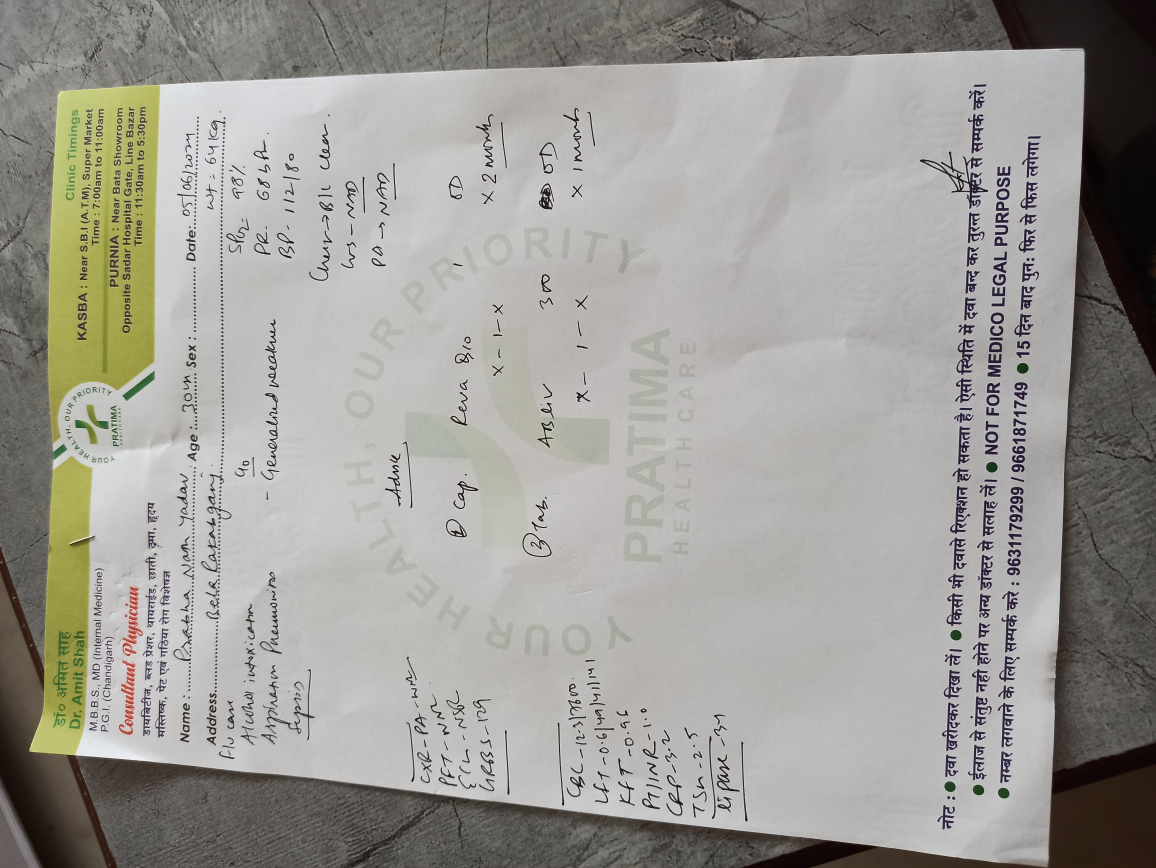 डॉ० अमित साह
Dr. Amit Shah
M.B.B.S., MD (Internal Medicine)
P.G.I. (Chandigarh)
Consultant Physician
डायबिटीज, ब्लड प्रेशर, थायराईड, छाती, दमा, हृदय
मस्तिष्क, पेट एवं गठिया रोग विशेषज्ञ
YOUR HEALTH, OUR PRIORITY
PRATIMA
HEALTHCARE
Clinic Timings
KASBA : Near S.B.I (A.T.M), Super Market
Time : 7:00am to 11:00am
PURNIA : Near Bata Showroom
Opposite Sadar Hospital Gate, Line Bazar
Time : 11:30am to 5:30pm
Name : Prabha Nath Yadav Age : 30 Sex : Date: 05/06/2024
Address Bela
Wt = 64 kg
F/u case
Alcohol intoxication
Aspiration Pneumonia
Sepsis
C/o
- Generalised weakness
SPO2= 98%
PR- 68 bpm
BP- 112/80
Chest→B/L Clear
NAD
PA → NAD
Advice
① Cap. 1 OD
x-1-x x 2 months
② Tab. 300 OD
x - 1 - x x 1 month
CXR-PA-WNL
PFT-WNL
GRBS-129
CBC-12.3/7600
LFT-0.6/49/41/141
KFT-0.96
PT/INR-1.0
CRP-3.2
TSH-2.5
lipase-34
YOUR HEALTH, OUR PRIORITY
PRATIMA
HEALTHCARE
नोट : ● दवा खरीदकर दिखा लें। ● किसी भी दवासे रिएक्शन हो सकता है। ऐसी स्थिति में दवा बन्द कर तुरन्त डॉक्टर से सम्पर्क करें।
● ईलाज से संतुष्ट नही होने पर अन्य डॉक्टर से सलाह लें। ● NOT FOR MEDICO LEGAL PURPOSE
● नम्बर लगवाने के लिए सम्पर्क करे : 9631179299 / 9661871749 ● 15 दिन बाद पुन: फिर से फिस लगेगा।